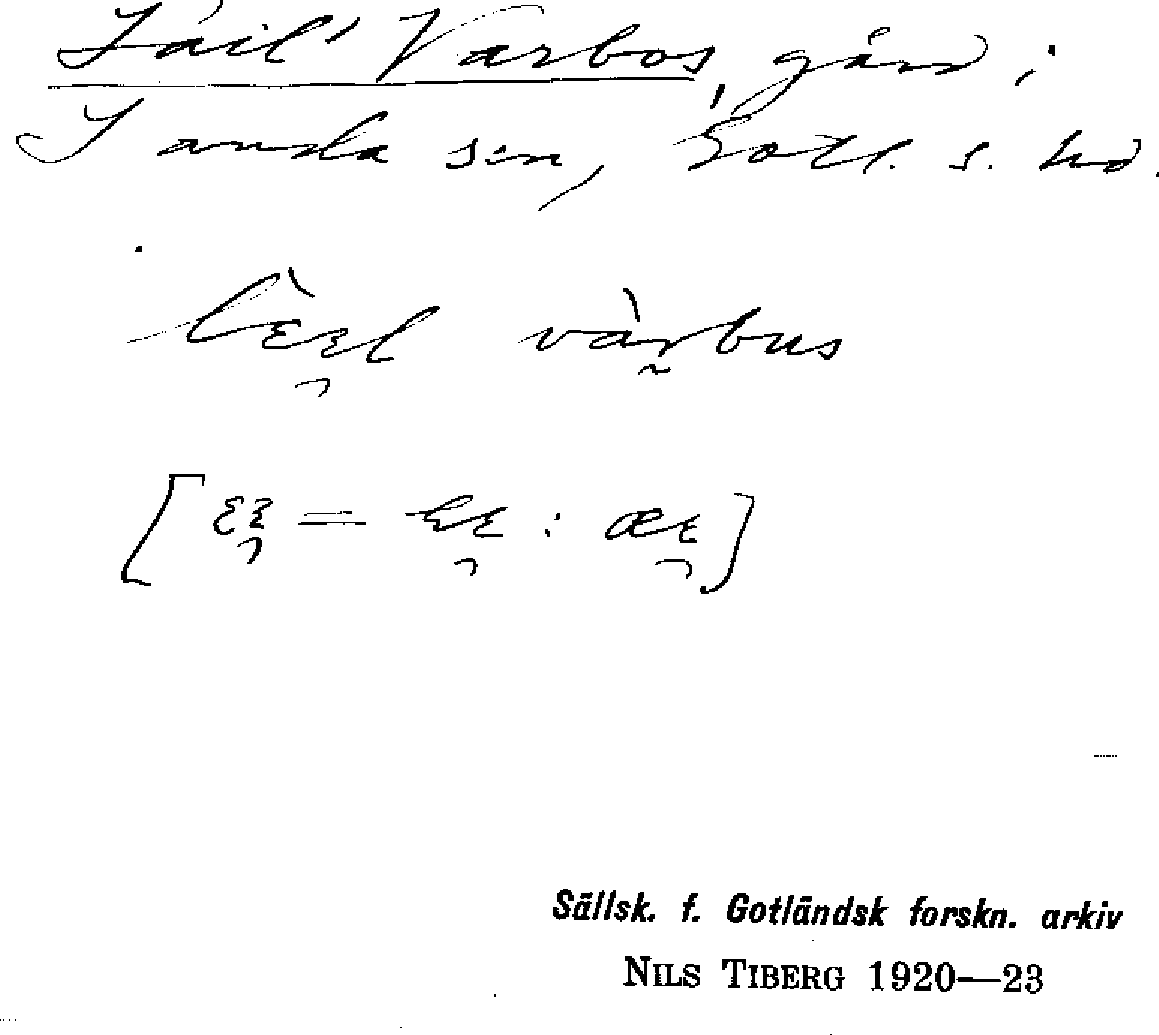 Läil' Varbos, gård i
Sanda sn, Gotl. s. hd.
vàrbus
Sällsk. f. Gotländsk forskn. arkiv
NILS TIBERG 1920—23